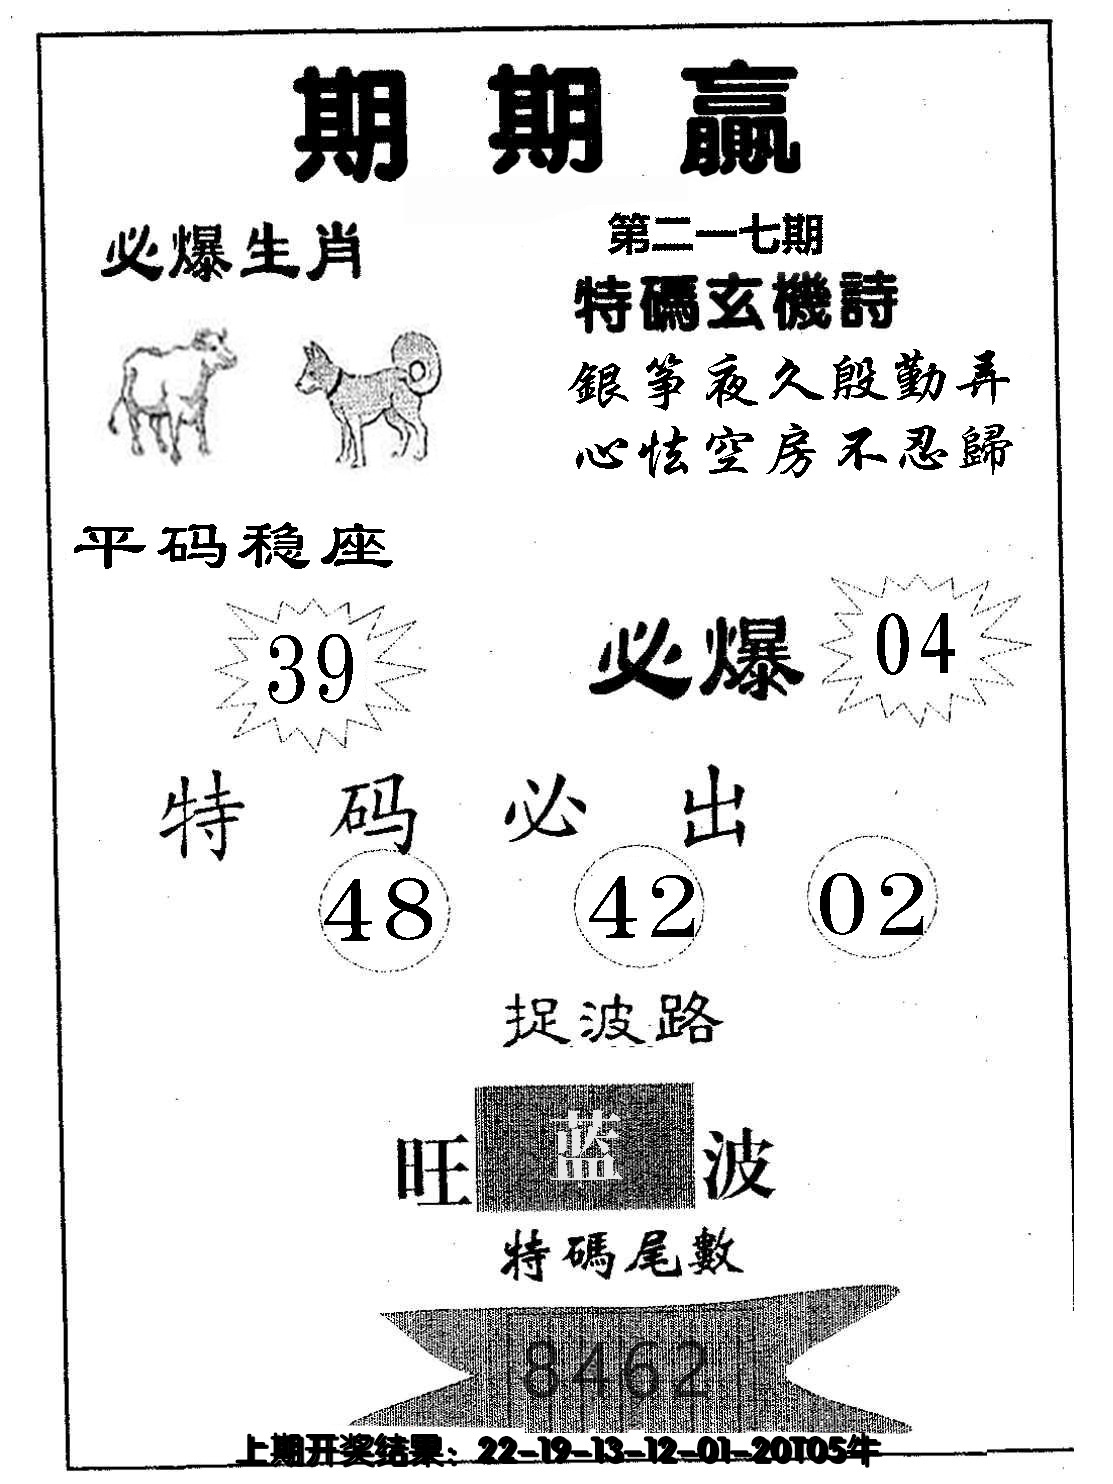 期期赢
必爆生肖
第二一七期
特碼玄機詩
銀筝夜久殷勤弄
心怯空房不忍歸
平码稳座
39
必爆 04
特码必出
48 42 02
捉波路
旺蓝波
特碼尾數
8462
上期开奖结果：22-19-13-12-01-20T05牛